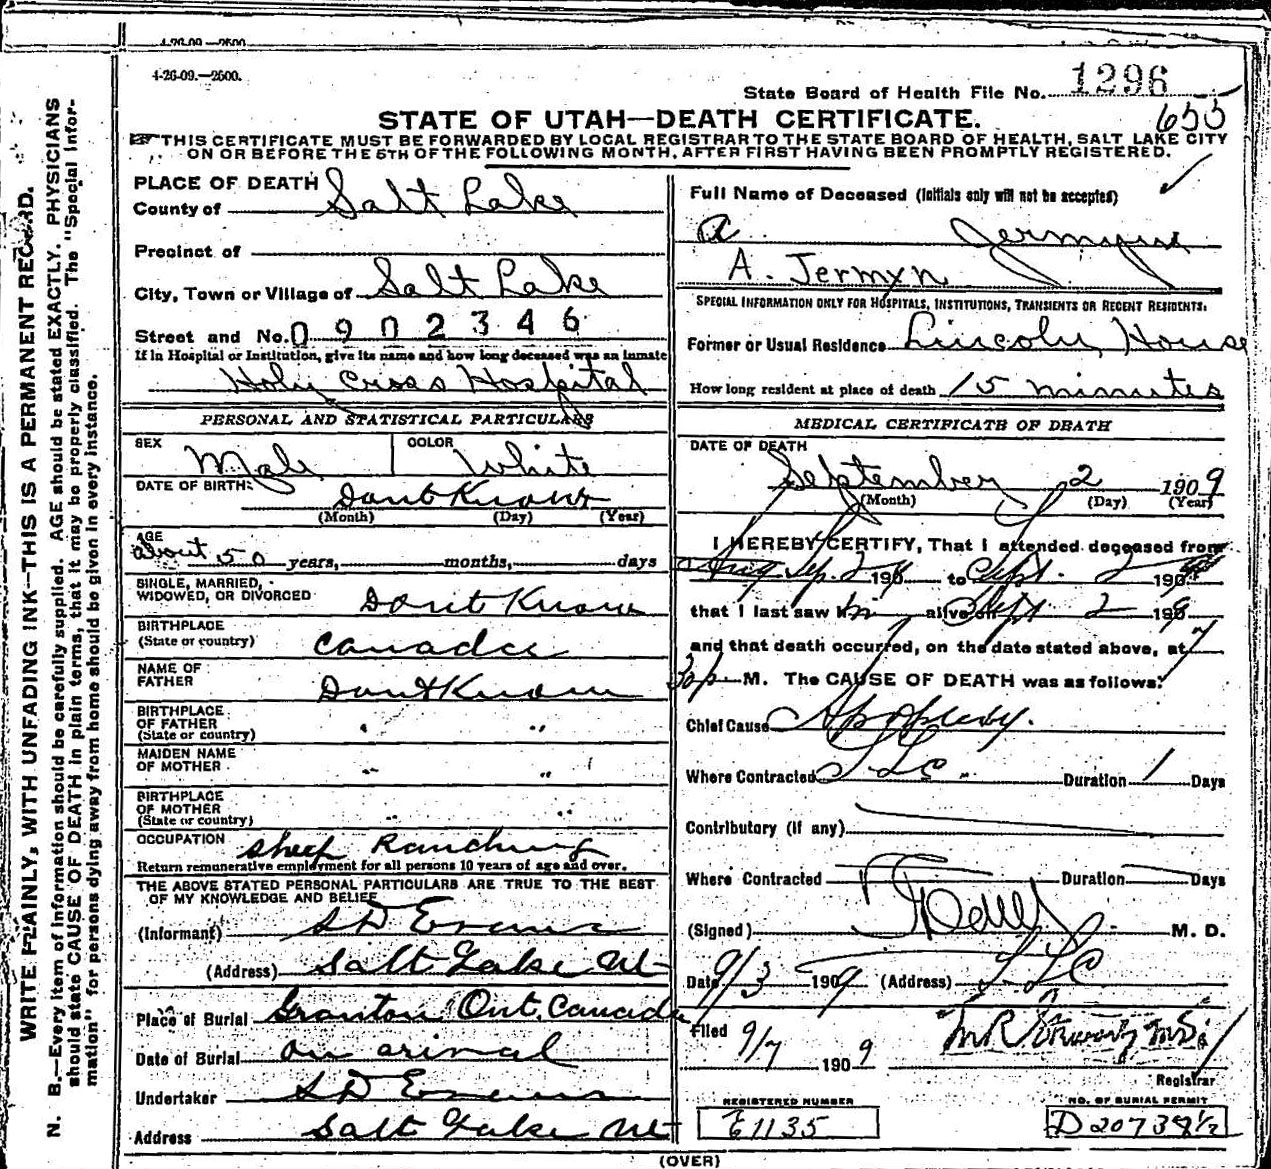 4-26-09.—2500.
4-26-09.—2500.
State Board of Health File No. 1296
655
STATE OF UTAH—DEATH CERTIFICATE.
THIS CERTIFICATE MUST BE FORWARDED BY LOCAL REGISTRAR TO THE STATE BOARD OF HEALTH, SALT LAKE CITY
ON OR BEFORE THE 5TH OF THE FOLLOWING MONTH, AFTER FIRST HAVING BEEN PROMPTLY REGISTERED.
WRITE PLAINLY, WITH UNFADING INK—THIS IS A PERMANENT RECORD.
N. B.—Every item of information should be carefully supplied. AGE should be stated EXACTLY. PHYSICIANS
should state CAUSE OF DEATH in plain terms, that it may be properly classified. The "Special Infor-
mation" for persons dying away from home should be given in every instance.
PLACE OF DEATH
County of Salt Lake
Precinct of
City, Town or Village of Salt Lake
Street and No. 0902346
If in Hospital or Institution, give its name and how long deceased was an inmate
Holy Cross Hospital
PERSONAL AND STATISTICAL PARTICULARS
SEX Male COLOR White
DATE OF BIRTH: Dont Know
(Month) (Day) (Year)
AGE
about 50 years, months, days
SINGLE, MARRIED,
WIDOWED, OR DIVORCED Dont Know
BIRTHPLACE
(State or country) Canada
NAME OF
FATHER Dont Know
BIRTHPLACE
OF FATHER
(State or country) " "
MAIDEN NAME
OF MOTHER " "
BIRTHPLACE
OF MOTHER
(State or country) " "
OCCUPATION Sheep Ranching
Return remunerative employment for all persons 10 years of age and over.
THE ABOVE STATED PERSONAL PARTICULARS ARE TRUE TO THE BEST
OF MY KNOWLEDGE AND BELIEF
(Informant) S D Evans
(Address) Salt Lake Ut
Place of Burial Granton Ont. Canada
Date of Burial on arival
Undertaker S D Evans
Address Salt Lake Ut
Full Name of Deceased (Initials only will not be accepted)
A Jermyn
A. Jermyn
SPECIAL INFORMATION ONLY FOR HOSPITALS, INSTITUTIONS, TRANSIENTS OR RECENT RESIDENTS:
Former or Usual Residence Lincoln House
How long resident at place of death 15 minutes
MEDICAL CERTIFICATE OF DEATH
DATE OF DEATH
September 2 1909
(Month) (Day) (Year)
I HEREBY CERTIFY, That I attended deceased from
Sep. 2 190 to Sept. 2 1909
that I last saw h im alive on Sept 2 1909
and that death occurred, on the date stated above, at 7
30 p M. The CAUSE OF DEATH was as follows:
Chief Cause Apoplexy.
Where Contracted S L C. Duration 1 Days
Contributory (if any)
Where Contracted Duration Days
(Signed) M. D.
Date 9/3 1909 (Address) S L C
Filed 9/7 1909
Registrar
REGISTERED NUMBER
E1135
NO. OF BURIAL PERMIT
D 20738½
(OVER)